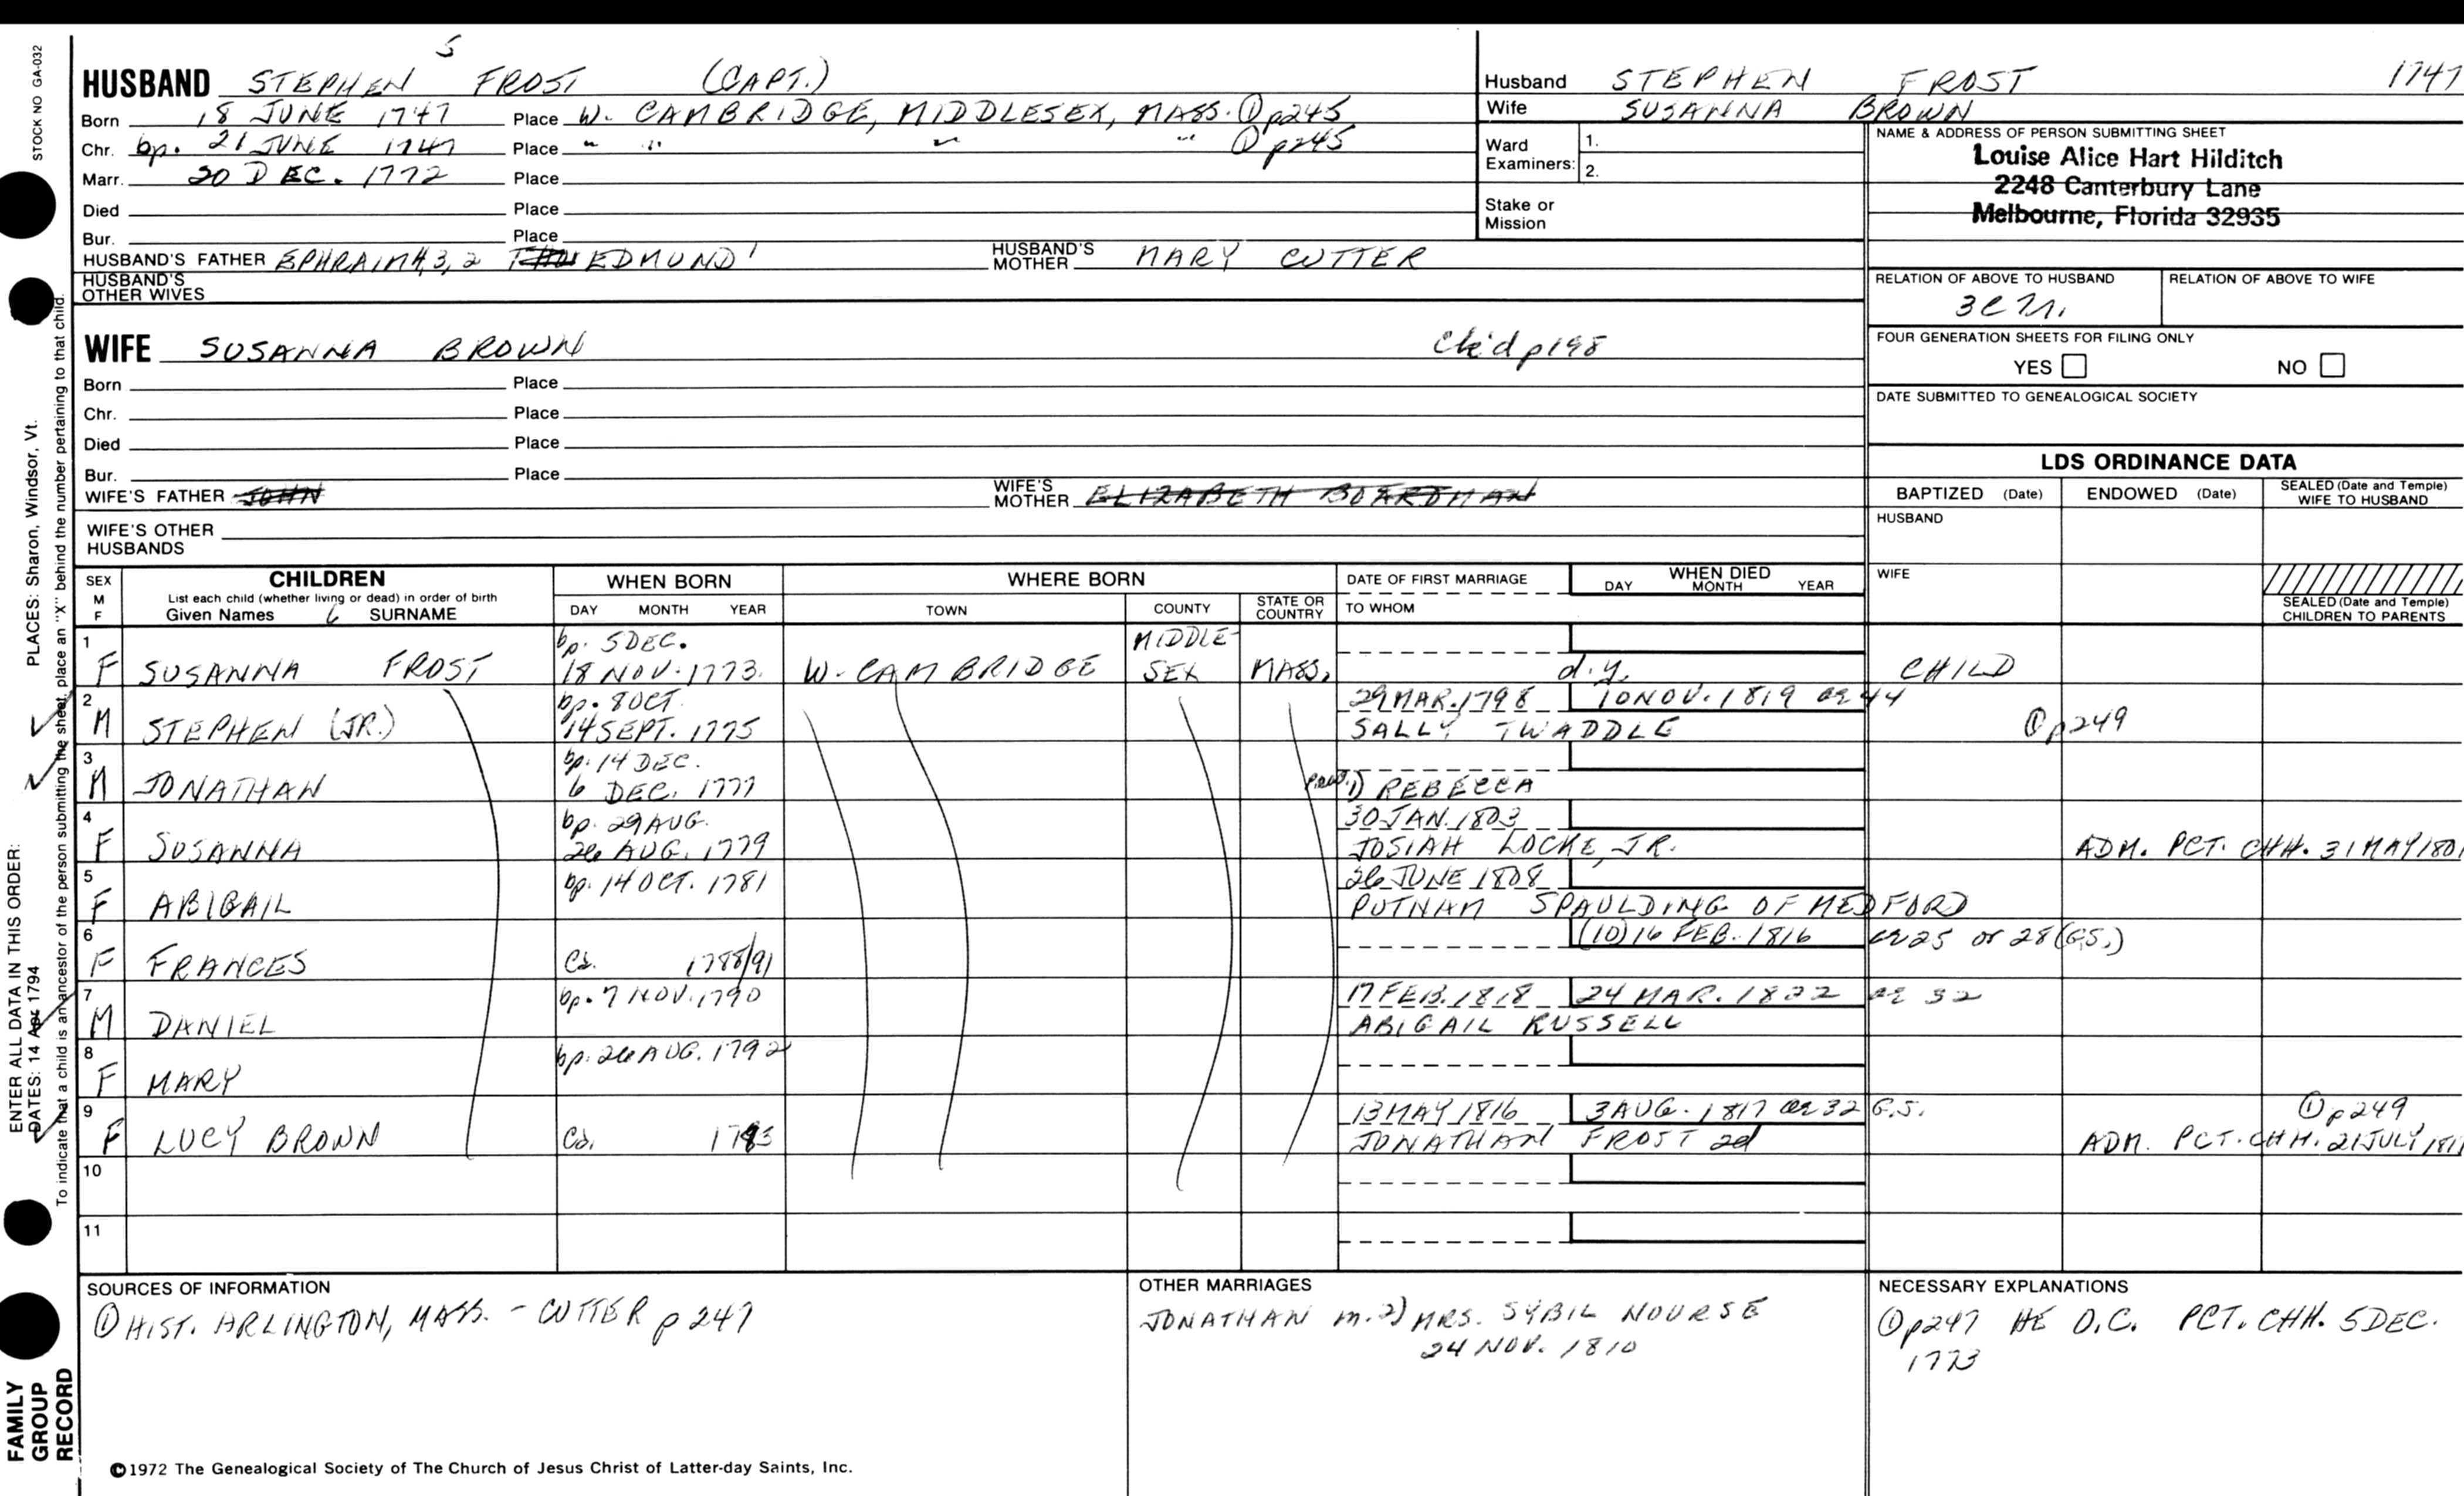 STOCK NO GA-032
5
HUSBAND STEPHEN FROST (CAPT.)
Born 18 JUNE 1747 Place W. CAMBRIDGE, MIDDLESEX, MASS. ① p245
Chr. bp. 21 JUNE 1747 Place " " " " ① p245
Marr. 20 DEC. 1772 Place
Died Place
Bur. Place
HUSBAND'S FATHER EPHRAIM 4, 3, 2 EDMUND 1 HUSBAND'S MOTHER MARY CUTTER
HUSBAND'S OTHER WIVES
WIFE SUSANNA BROWN ck'd p198
Born Place
Chr. Place
Died Place
Bur. Place
WIFE'S FATHER JOHN WIFE'S MOTHER ELIZABETH BOARDMAN
WIFE'S OTHER HUSBANDS
Husband STEPHEN FROST 1747
Wife SUSANNA BROWN
Ward Examiners: 1.
2.
Stake or Mission
NAME & ADDRESS OF PERSON SUBMITTING SHEET
Louise Alice Hart Hilditch
2248 Canterbury Lane
Melbourne, Florida 32935
RELATION OF ABOVE TO HUSBAND RELATION OF ABOVE TO WIFE
FOUR GENERATION SHEETS FOR FILING ONLY
YES NO
DATE SUBMITTED TO GENEALOGICAL SOCIETY
LDS ORDINANCE DATA
BAPTIZED (Date) ENDOWED (Date) SEALED (Date and Temple) WIFE TO HUSBAND
HUSBAND
WIFE
SEALED (Date and Temple) CHILDREN TO PARENTS
SEX M F CHILDREN WHEN BORN WHERE BORN DATE OF FIRST MARRIAGE WHEN DIED
List each child (whether living or dead) in order of birth
Given Names 6 SURNAME DAY MONTH YEAR TOWN COUNTY STATE OR COUNTRY TO WHOM DAY MONTH YEAR
1 bp. 5 DEC. MIDDLE-
F SUSANNA FROST 18 NOV. 1773. W. CAMBRIDGE SEX MASS. d.y. CHILD
2 bp. 8 OCT. 29 MAR. 1798 10 NOV. 1819 ae 44
M STEPHEN (JR.) 14 SEPT. 1775 SALLY TWADDLE ① p249
3 bp. 14 DEC.
M JONATHAN 6 DEC. 1777 1) REBECCA
4 bp. 29 AUG. 30 JAN. 1803
F SUSANNA 26 AUG. 1779 JOSIAH LOCKE, JR. ADM. PCT. CHH. 31 MAY 180
5 bp. 14 OCT. 1781 26 JUNE 1808
F ABIGAIL PUTNAM SPAULDING OF MEDFORD
6 (10) 16 FEB. 1816 ae 25 or 28 (G.S.)
F FRANCES Ca. 1788/91
7 bp. 7 NOV. 1790 17 FEB. 1818 24 MAR. 1822 ae 32
M DANIEL ABIGAIL RUSSELL
8 bp. 26 AUG. 1792
F MARY
9 13 MAY 1816 3 AUG. 1817 ae 32 G.S. ① p249
F LUCY BROWN Ca. JONATHAN FROST 2d ADM. PCT. CHH. 21 JULY 181
10
11
SOURCES OF INFORMATION
① HIST. ARLINGTON, MASS. - CUTTER p 247
OTHER MARRIAGES
JONATHAN m. 2) MRS. SYBIL NOURSE
24 NOV. 1810
NECESSARY EXPLANATIONS
① p247 HE O.C. PCT. CHH. 5 DEC.
1773
©1972 The Genealogical Society of The Church of Jesus Christ of Latter-day Saints, Inc.
ENTER ALL DATA IN THIS ORDER: PLACES: Sharon, Windsor, Vt.
DATES: 14 Apr 1794
To indicate that a child is an ancestor of the person submitting the sheet, place an "X" behind the number pertaining to that child.
FAMILY
GROUP
RECORD